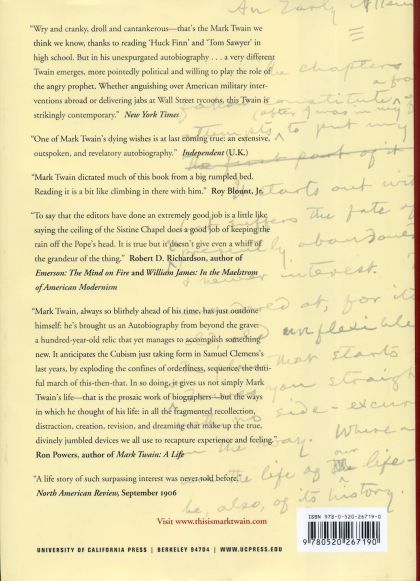 An Early Attem
"Wry and cranky, droll and cantankerous—that's the Mark Twain we
think we know, thanks to reading 'Huck Finn' and 'Tom Sawyer' in
high school. But in his unexpurgated autobiography . . . a very different
Twain emerges, more pointedly political and willing to play the role of
the angry prophet. Whether anguishing over American military inter-
ventions abroad or delivering jabs at Wall Street tycoons, this Twain is
strikingly contemporary." New York Times
"One of Mark Twain's dying wishes is at last coming true: an extensive,
outspoken, and revelatory autobiography." Independent (U.K.)
"Mark Twain dictated much of this book from a big rumpled bed.
Reading it is a bit like climbing in there with him." Roy Blount, Jr.
"To say that the editors have done an extremely good job is a little like
saying the ceiling of the Sistine Chapel does a good job of keeping the
rain off the Pope's head. It is true but it doesn't give even a whiff of
the grandeur of the thing." Robert D. Richardson, author of
Emerson: The Mind on Fire and William James: In the Maelstrom
of American Modernism
"Mark Twain, always so blithely ahead of his time, has just outdone
himself: he's brought us an Autobiography from beyond the grave
a hundred-year-old relic that yet manages to accomplish something
new. It anticipates the Cubism just taking form in Samuel Clemens's
last years, by exploding the confines of orderliness, sequence, the duti-
ful march of this-then-that. In so doing, it gives us not simply Mark
Twain's life—that is the prosaic work of biographers—but the ways
in which he thought of his life: in all the fragmented recollection,
distraction, creation, revision, and dreaming that make up the true,
divinely jumbled devices we all use to recapture experience and feeling."
Ron Powers, author of Mark Twain: A Life
"A life story of such surpassing interest was never told before."
North American Review, September 1906
chapters
constitute
(after)
to put my
the first part of it
starts out with
suffers the fate of
abandoned
newer interest.
at, for it
unflexible
that starts
you straight
side-excur
the way. Where
the life of our life-
he, also, of its history.
Visit www.thisismarktwain.com
ISBN 978-0-520-26719-0
9 780520 267190
UNIVERSITY OF CALIFORNIA PRESS | BERKELEY 94704 | WWW.UCPRESS.EDU